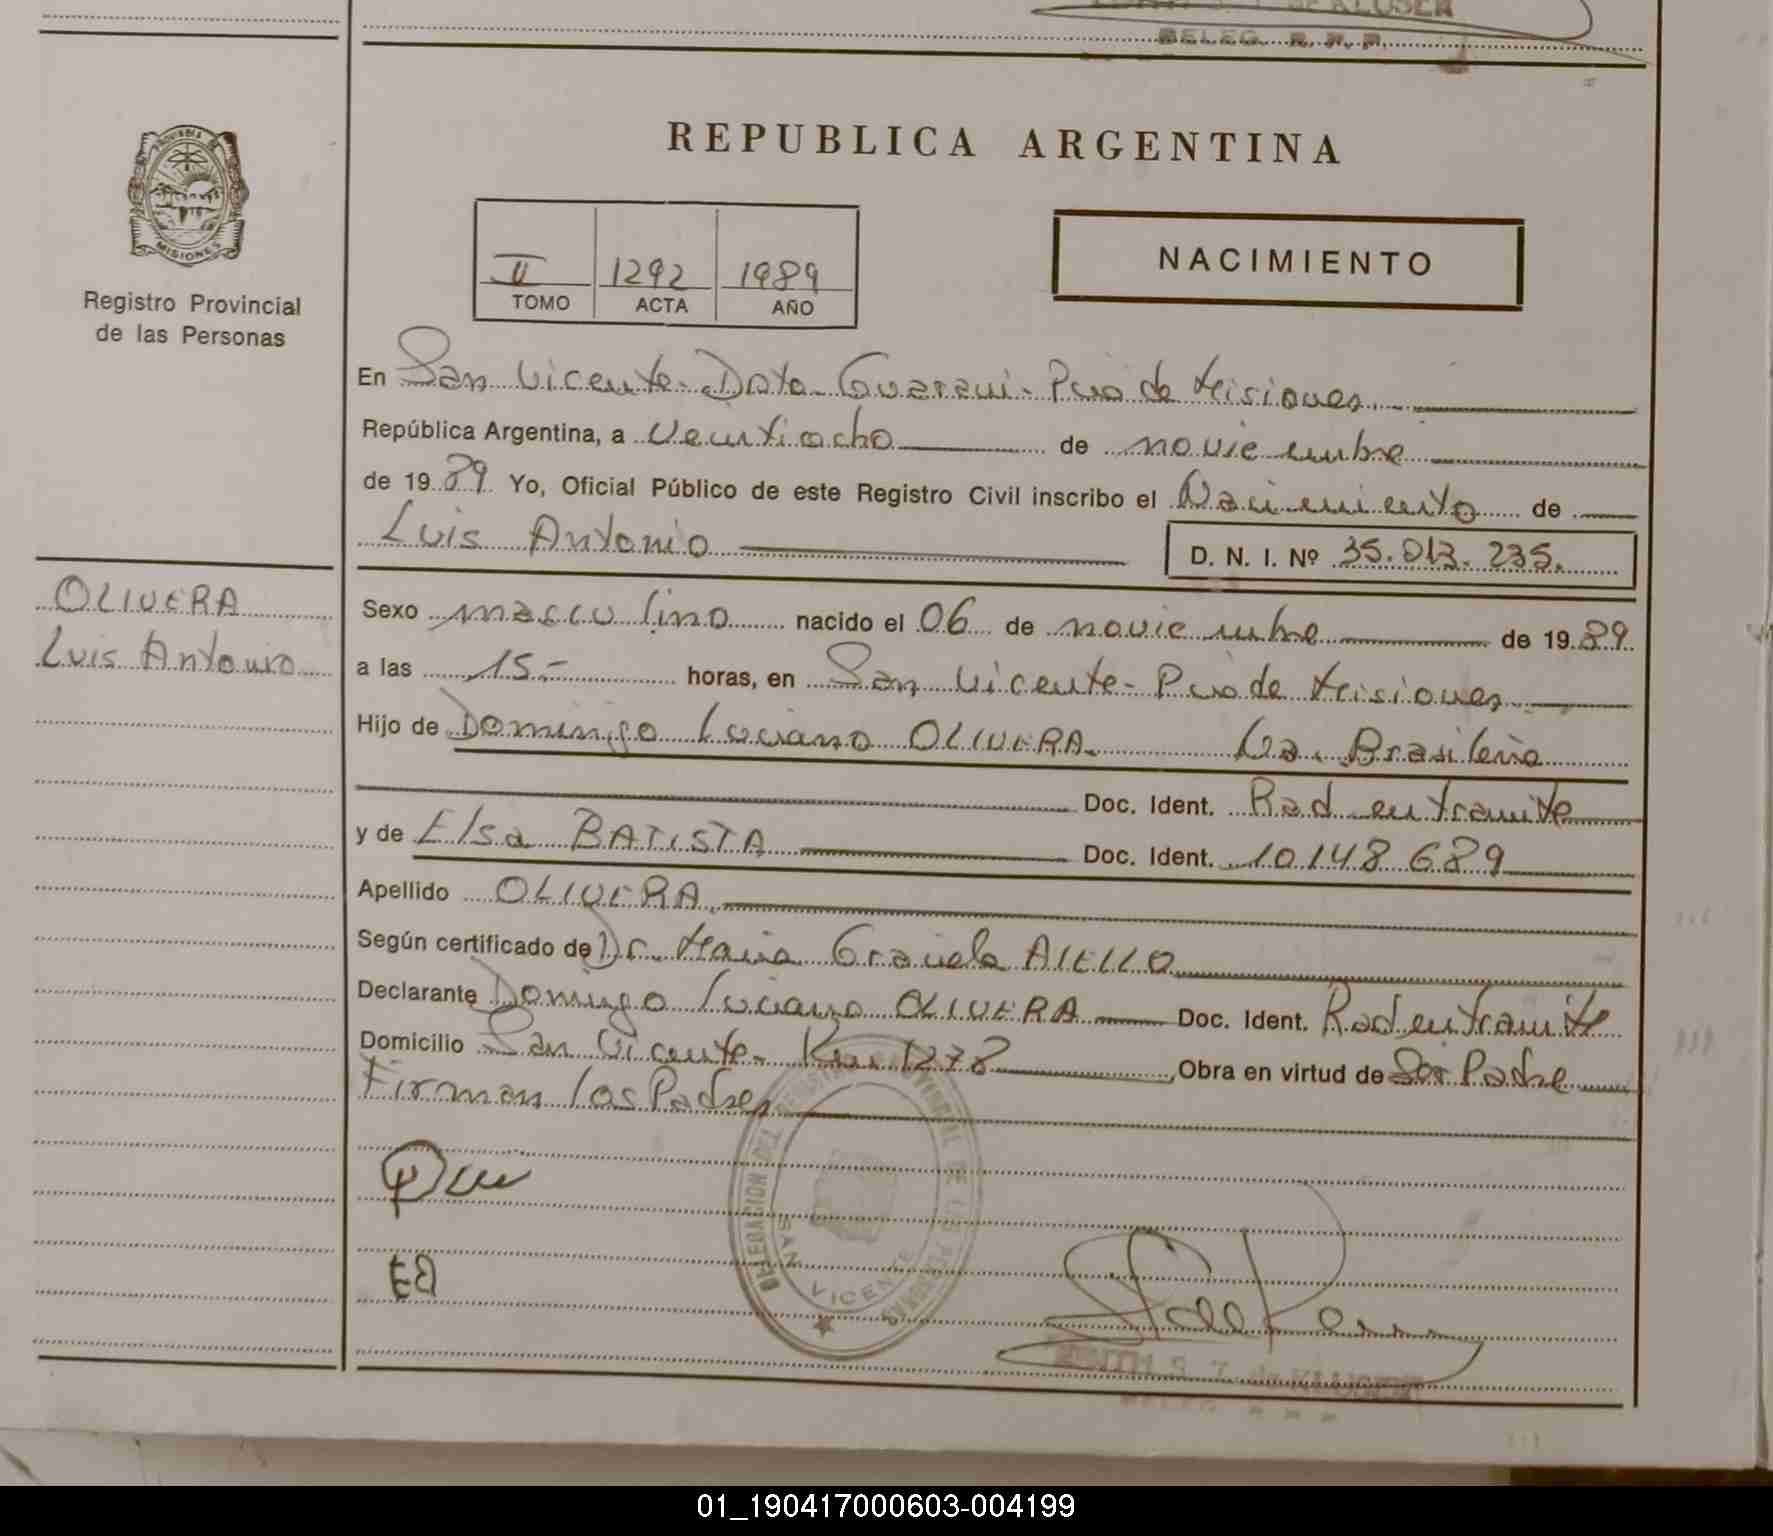 DELEG. R. P. P.
REPUBLICA ARGENTINA
PROVINCIA DE MISIONES
Registro Provincial
de las Personas
II 1292 1989
TOMO ACTA AÑO
NACIMIENTO
En San Vicente - Dpto. Guarani - Pcia de Misiones
República Argentina, a Veintiocho de noviembre
de 1989 Yo, Oficial Público de este Registro Civil inscribo el Nacimiento de
Luis Antonio
D. N. I. Nº 35.013.235.
OLIVERA
Luis Antonio
Sexo masculino nacido el 06 de noviembre de 1989
a las 15.- horas, en San Vicente - Pcia de Misiones
Hijo de Domingo Luciano OLIVERA. Brasileña
Doc. Ident. Rad en tramite
y de Elsa BATISTA Doc. Ident. 10148689
Apellido OLIVERA
Según certificado de Dr. Maria Graciela AIELLO
Declarante Domingo Luciano OLIVERA Doc. Ident. Rad en tramite
Domicilio San Vicente - Km 1278, Obra en virtud de Ser Padre
Firman los Padres
EB
DELEGACION DEL REGISTRO PROVINCIAL DE LAS PERSONAS
SAN VICENTE
EDITH S. T. de KLUSER
DELEG. R. P. P.
01_190417000603-004199